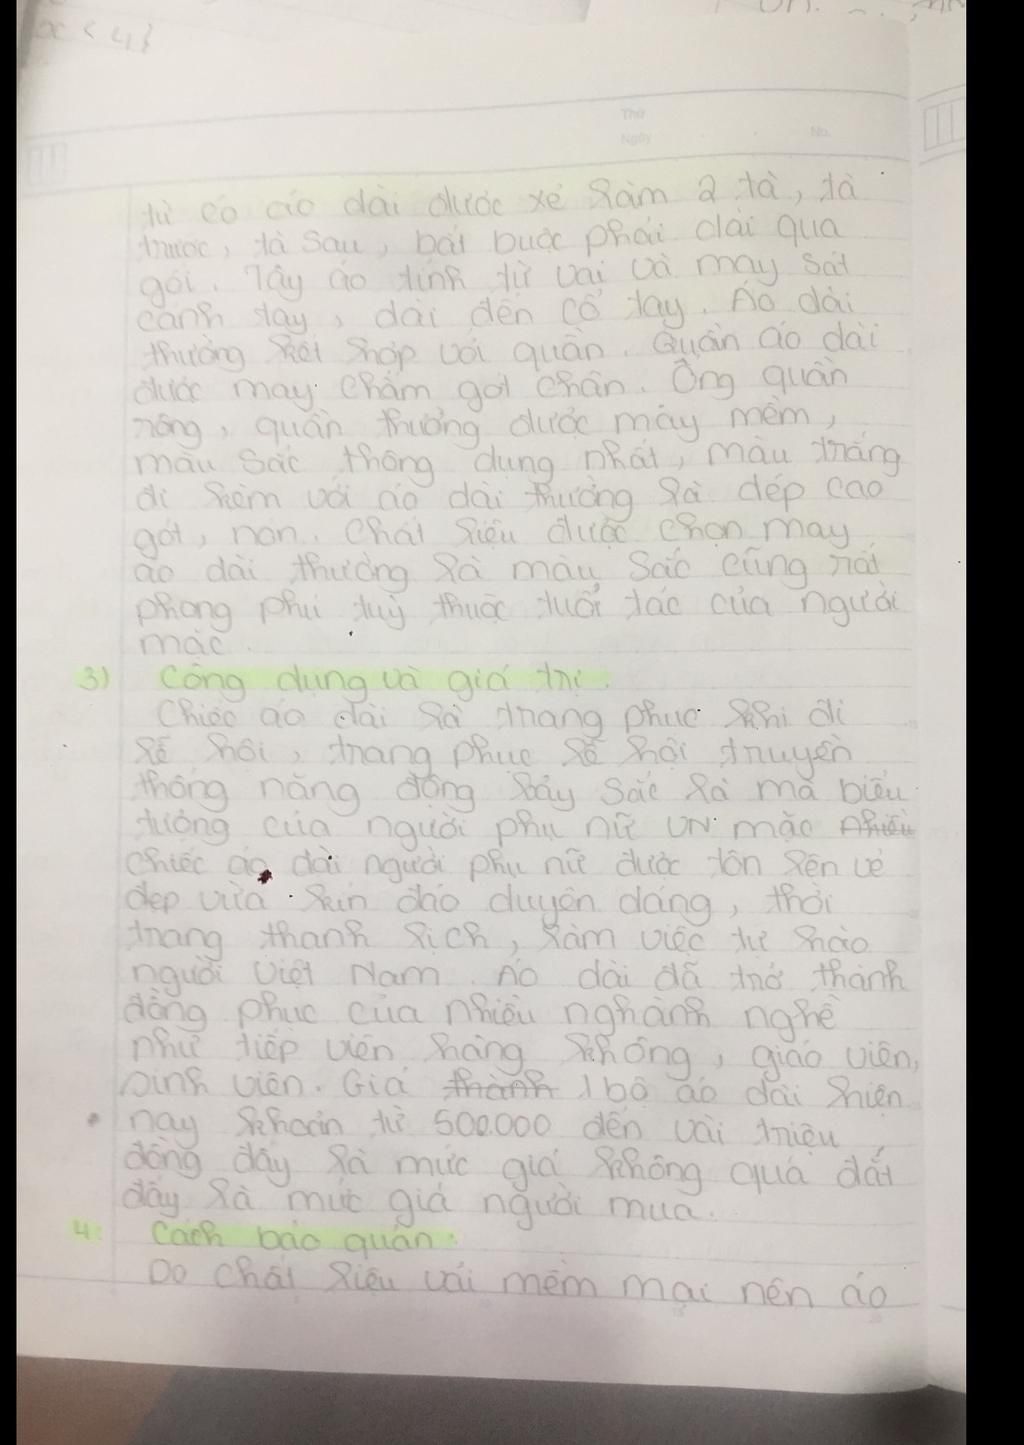 x < 4}
Thứ
Ngày
No.
từ eo áo dài được xẻ làm 2 tà, tà
trước, tà sau, bắt buộc phải dài qua
gối. Tây áo tính từ vai và may sát
cánh tay, dài đến cổ tay. Áo dài
thường kết hợp với quần. Quần áo dài
được may chấm gót chân. Ống quần
rộng, quần thường được máy mềm,
màu sắc thông dụng nhất, màu trắng
đi kèm với áo dài thường là dép cao
gót, nón. Chất liệu được chọn may
áo dài thường là màu sắc cũng rất
phong phú tuỳ thuộc tuổi tác của người
mặc.
3) Công dụng và giá trị.
Chiếc áo dài là trang phục khi đi
lễ hội, trang phục lễ hội truyền
thống năng động bảy sắc là mà biểu
tượng của người phụ nữ VN. mặc nhiều
chiếc áo dài người phụ nữ được tôn lên vẻ
đẹp vừa kín đáo duyên dáng, thời
trang thanh lịch, làm việc tự hào
người Việt Nam. Áo dài đã trở thành
đồng phục của nhiều nghành nghề
như tiếp viên hàng không, giáo viên,
sinh viên. Giá thành 1 bộ áo dài hiện
nay khoản từ 500.000 đến vài triệu
đồng đây là mức giá không quá đắt
đây là mức giá người mua.
4: Cách bảo quản:
Do chất liệu vải mềm mại nên áo